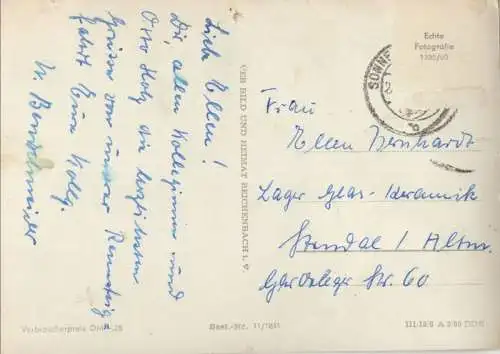 Liebe Ellen!
Dir, allen Kolleginnen und
Otto die herzlichsten
Grüsse von unserer Rennsteig-
fahrt Eure Kolln.
VEB BILD UND HEIMAT REICHENBACH i. V.
Echte
Fotografie
SONNE
Frau
Ellen Bernhardt
Lager Glas-Keramik
Stendal / Altm.
Str. 60
Verbraucherpreis DM
Best.-Nr. 11/
III-18/6 A DDR